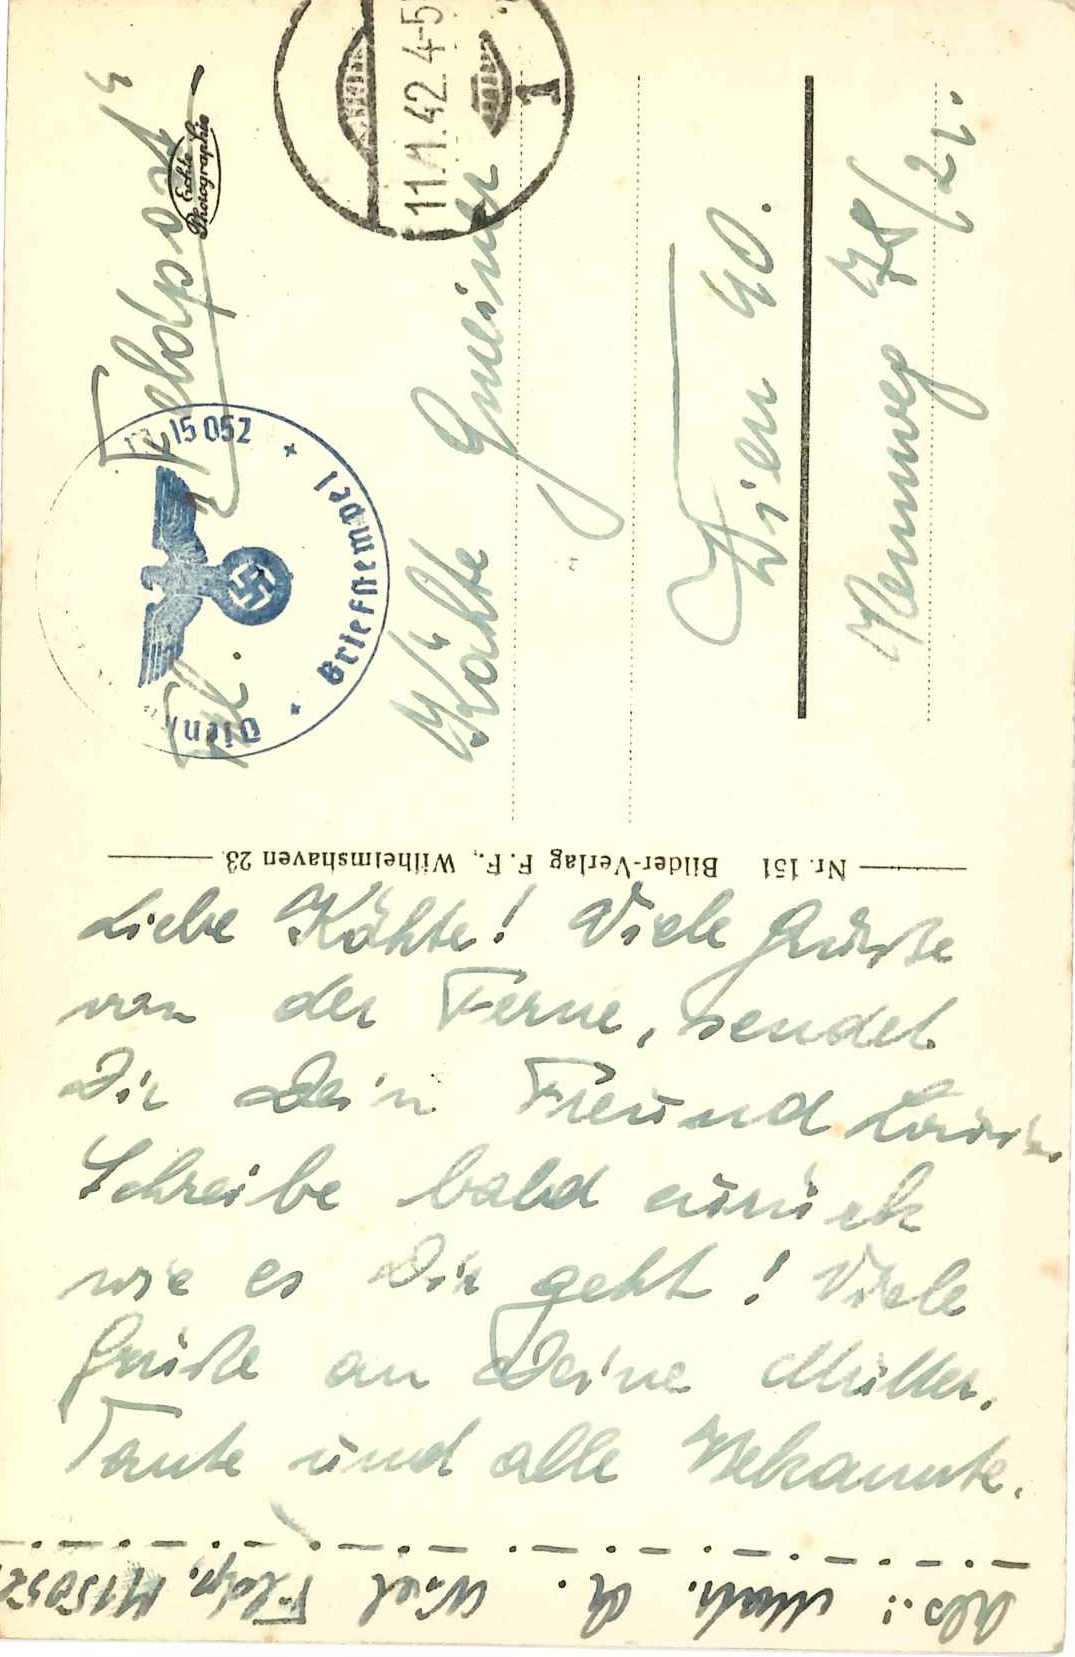 Feldpost
Echte
Photographie
11.1.42.4-5
1
M 15 052
Briefstempel
Frl.
Käthe Gmeiner
Wien 40.
Rennweg 78/21.
Nr. 151 Bilder-Verlag F. F., Wilhelmshaven 23
Liebe Käthte! Viele Grüsse
von der Ferne, sendet
Dir Dein Freund
Schreibe bald zurück
wie es Dir geht! Viele
Grüße an Deine Mutter,
Tante und alle Bekannte.
Abs.: Matr. Feldp. M15052